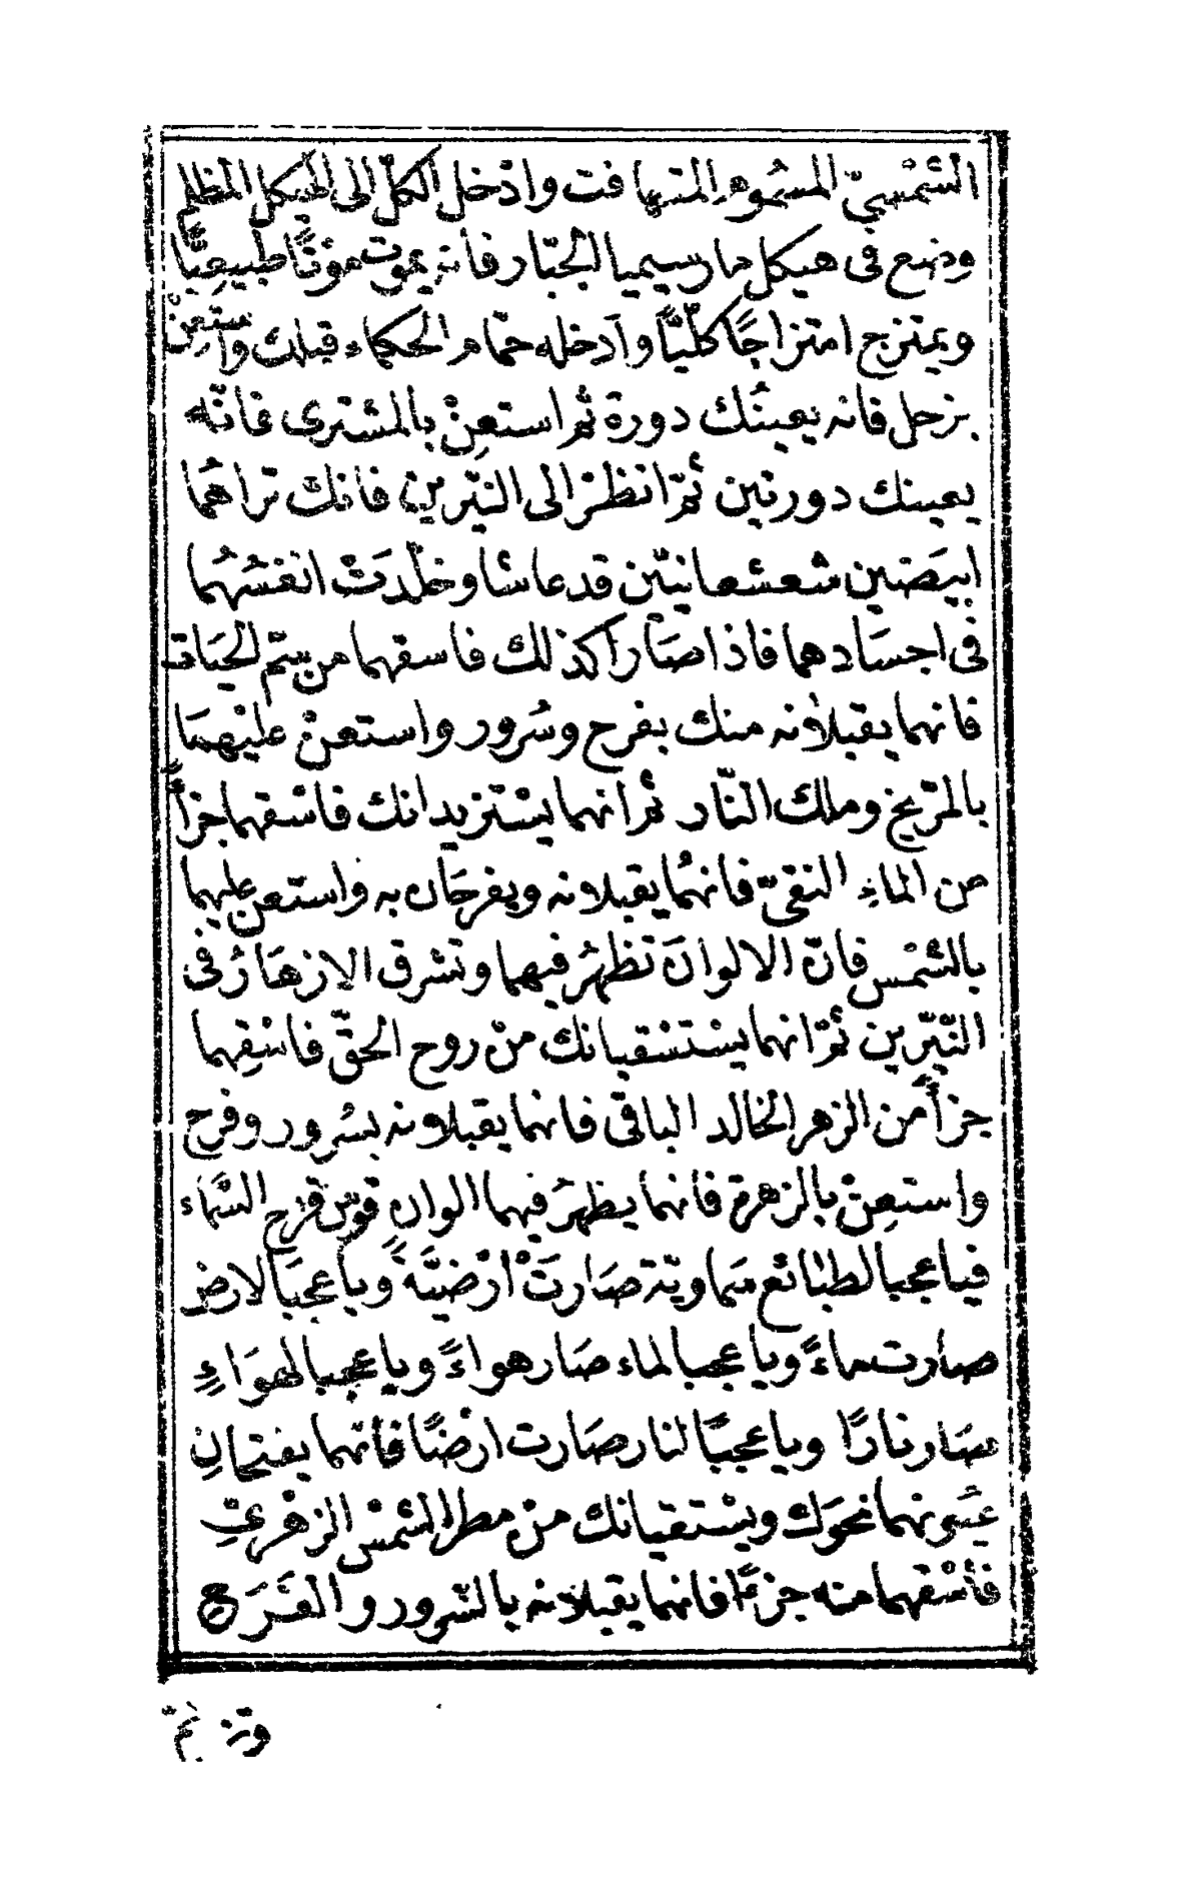 الشَّمْسِيّ المسُموم المتهافت وادْخل الكلّ الى الهيكل المظلم
وضع فى هيكل مارسيميا الجبّار فأنه يموت موْتًا طبيعيًّا
ويمتزج امتزاجًا كلّيًّا وأدخله حمّام الحكماء قبلك واستعِنْ
بزحل فانه يعينُك دورة ثم استعِنْ بالمشترى فانّه
يعينك دورتين ثمّ انظرْ الى النيّرين فانك تراهُما
ابيَضين شعشعانيّين قد عاشا وخلّدَتْ انفسُهُما
فى اجسَادهما فاذا صَارا كذلك فاسقهما من سمّ الحيَات
فانهما يقبلانه منك بفرح وسُرور واستعنْ عليْهمَا
بالمرّيخ وملك النّار ثم انهما يسْتزيدانك فاسْقهما جزأً
من الماءِ النقىّ فانهُما يقبلانه ويفرحَان به واستعن عليهما
بالشمْس فانّ الالوانَ تظهرُ فيهما وتشرق الازهَارُ فى
النّيّرين ثمّ انهما يسْتسْقيانك منْ روح الحقّ فاسْقِهما
جزأً من الزهر الخالد الباقى فانهما يقبلانه بسُرور وفرح
واستعِنْ بالزهرة فانهما يظهرُ فيهما الوان قوس قزح السَّماء
فيا عجبا لطبائع سَماويّة صَارتْ ارْضيَّةً وياعجبَا لارض
صارت ماءً وياعجبا لماء صَار هواءً وياعجبا لهوَاءٍ
صَار نارًا وياعجبًا لنار صَارت ارْضًا فأنّهما يفتحانِ
عيُونهما نحوَك ويسْتسقيانك منْ مطر الشمْس الزهْرىّ
فأسْقهما منه جزءًا فانهما يقبلانه بالسّرور والفَرَح